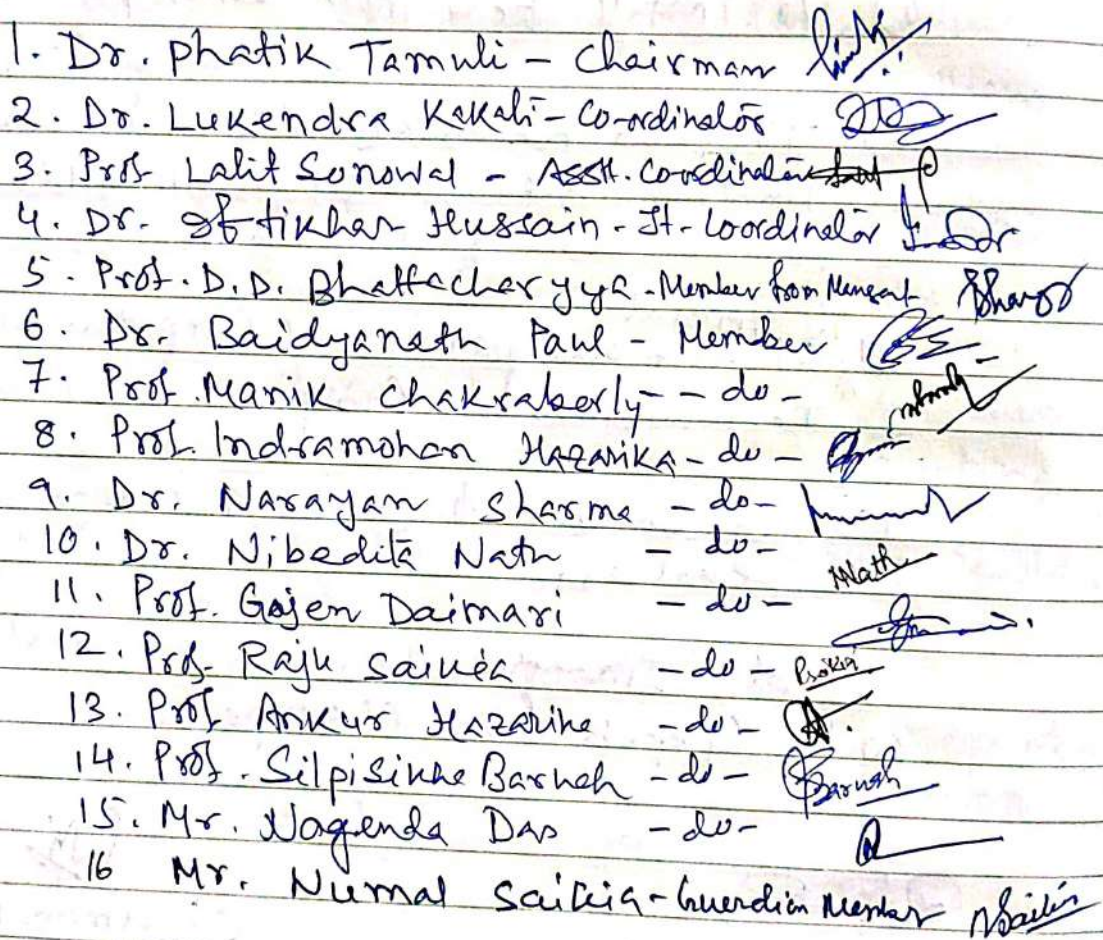 1. Dr. Phatik Tamuli - Chairman
2. Dr. Lukendra Kakati - Co-ordinator
3. Prof. Lalit Sonowal - Asstt. Coordinator
4. Dr. Iftikhar Hussain - Jt. Coordinator
5. Prof. D. D. Bhattacharyya - Member from
6. Dr. Baidyanath Paul - Member
7. Prof. Manik Chakraborty - do -
8. Prof. Indramohan Hazarika - do -
9. Dr. Narayan Sharma - do -
10. Dr. Nibedita Nath - do - Nath
11. Prof. Gajen Daimari - do -
12. Prof. Raju Saikia - do - RSaikia
13. Prof. Ankur Hazarika - do -
14. Prof. Silpisikha Baruah - do - Baruah
15. Mr. Nagenda Das - do -
16 Mr. Numal Saikia - Guardian Member NSaikia